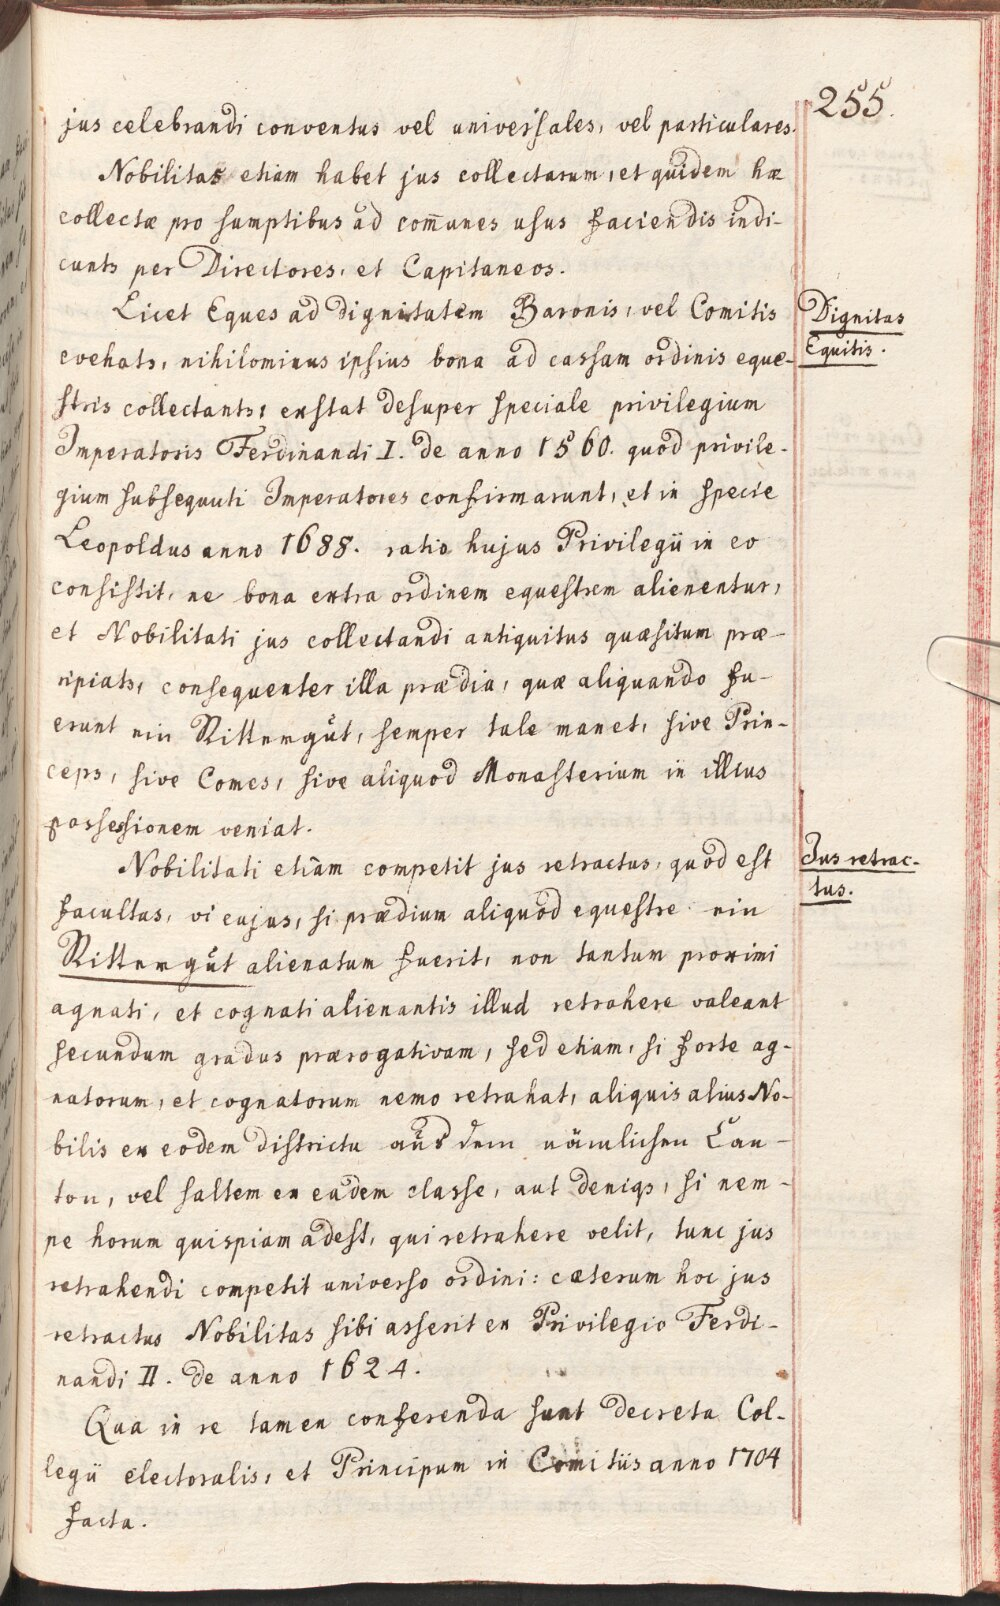 255.
jus celebrandi conventus vel universales, vel particulares.
Nobilitas etiam habet jus collectarum, et quidem hæ
collectæ pro sumptibus ad com̄unes usus faciendis indi-
cunts per Directores, et Capitaneos.
Licet Eques ad dignitatem Baronis, vel Comitis
Dignitas
Equitis.
evehats, nihilominus ipsius bona ad cassam ordinis eque-
stris collectants, exstat desuper speciale privilegium
Imperatoris Ferdinandi I. de anno 1560. quod privile-
gium subsequuti Imperatores confirmarunt, et in specie
Leopoldus anno 1688. ratio hujus Privilegii in eo
consistit, ne bona extra ordinem equestrem alienentur,
et Nobilitati jus collectandi antiquitus quæsitum præ-
ripiats, consequenter illa prædia, quæ aliquando fu-
erunt ein Rittergut, semper tale manet, sive Prin-
ceps, sive Comes, sive aliquod Monasterium in illius
possessionem veniat.
Nobilitati etiam competit jus retractus, quod est
Jus retrac-
tus.
facultas, vi cujus, si prædium aliquod equestre ein
Rittergut alienatum fuerit, non tantum proximi
agnati, et cognati alienantis illud retrahere valeant
secundum gradus prærogativam, sed etiam, si forte ag-
natorum, et cognatorum nemo retrahat, aliquis alius No-
bilis ex eodem districtu aus dem nämlichen Can-
ton, vel saltem ex eadem classe, aut deniqs, si nem-
pe horum quispiam adest, qui retrahere velit, tunc jus
retrahendi competit universo ordini: cæterum hoc jus
retractus Nobilitas sibi asserit ex Privilegio Ferdi-
nandi II. de anno 1624.
Qua in re tamen conferenda sunt decreta Col-
legii electoralis, et Principum in Comitiis anno 1704
facta.